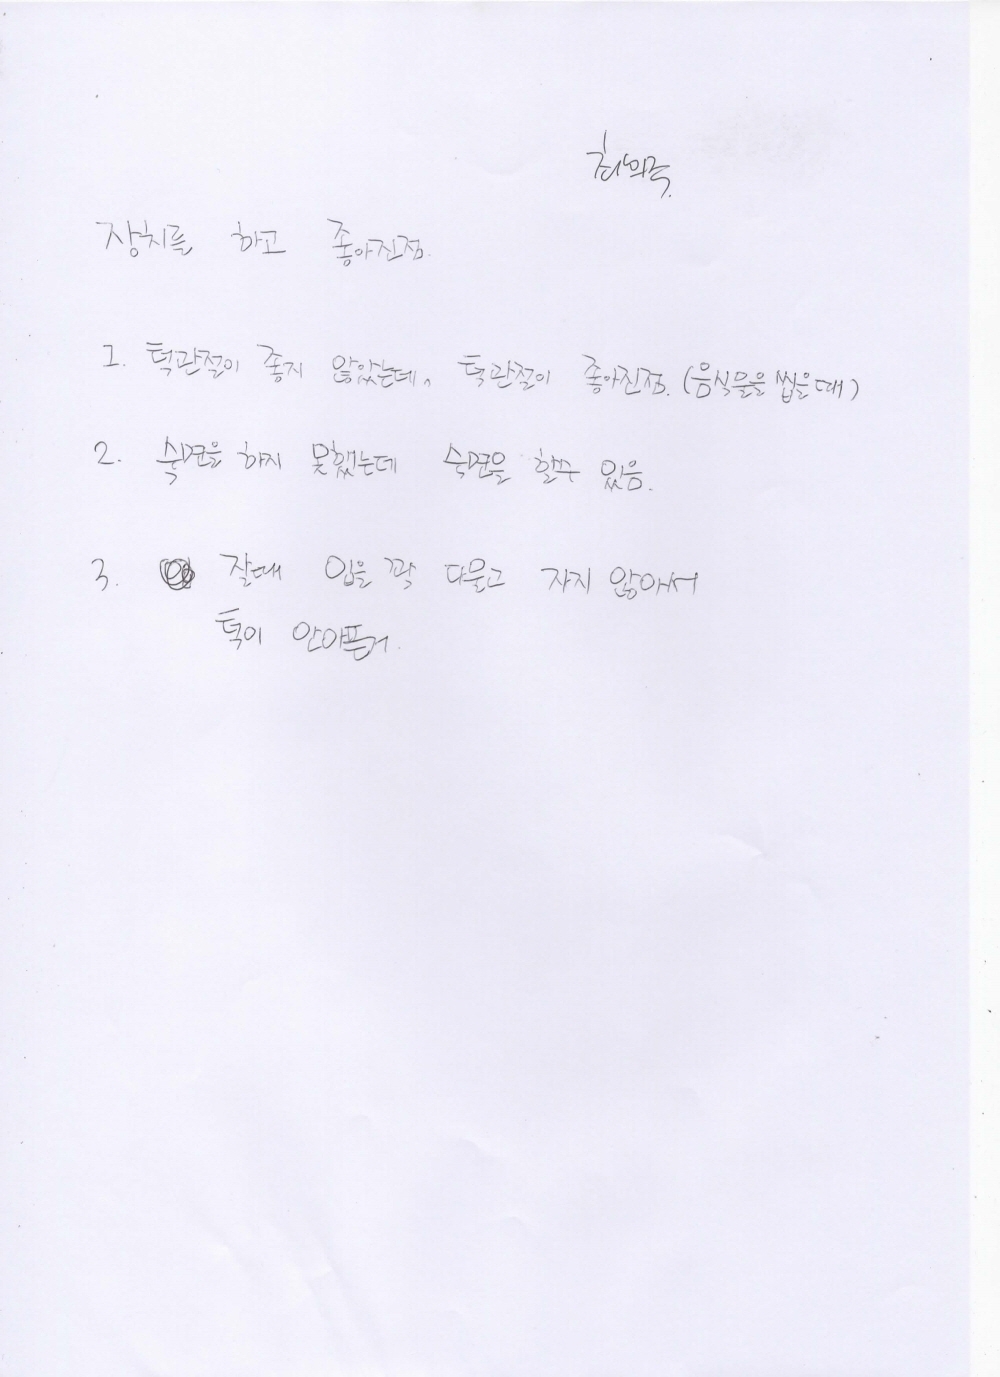 장치를 하고 좋아진점.
1. 턱관절이 좋지 않았는데, 턱관절이 좋아진점. (음식물을 씹을때)
2. 숙면을 하지 못했는데 숙면을 할수 있음.
3. 잘때 입을 꽉 다물고 자지 않아서
턱이 안아픈거.